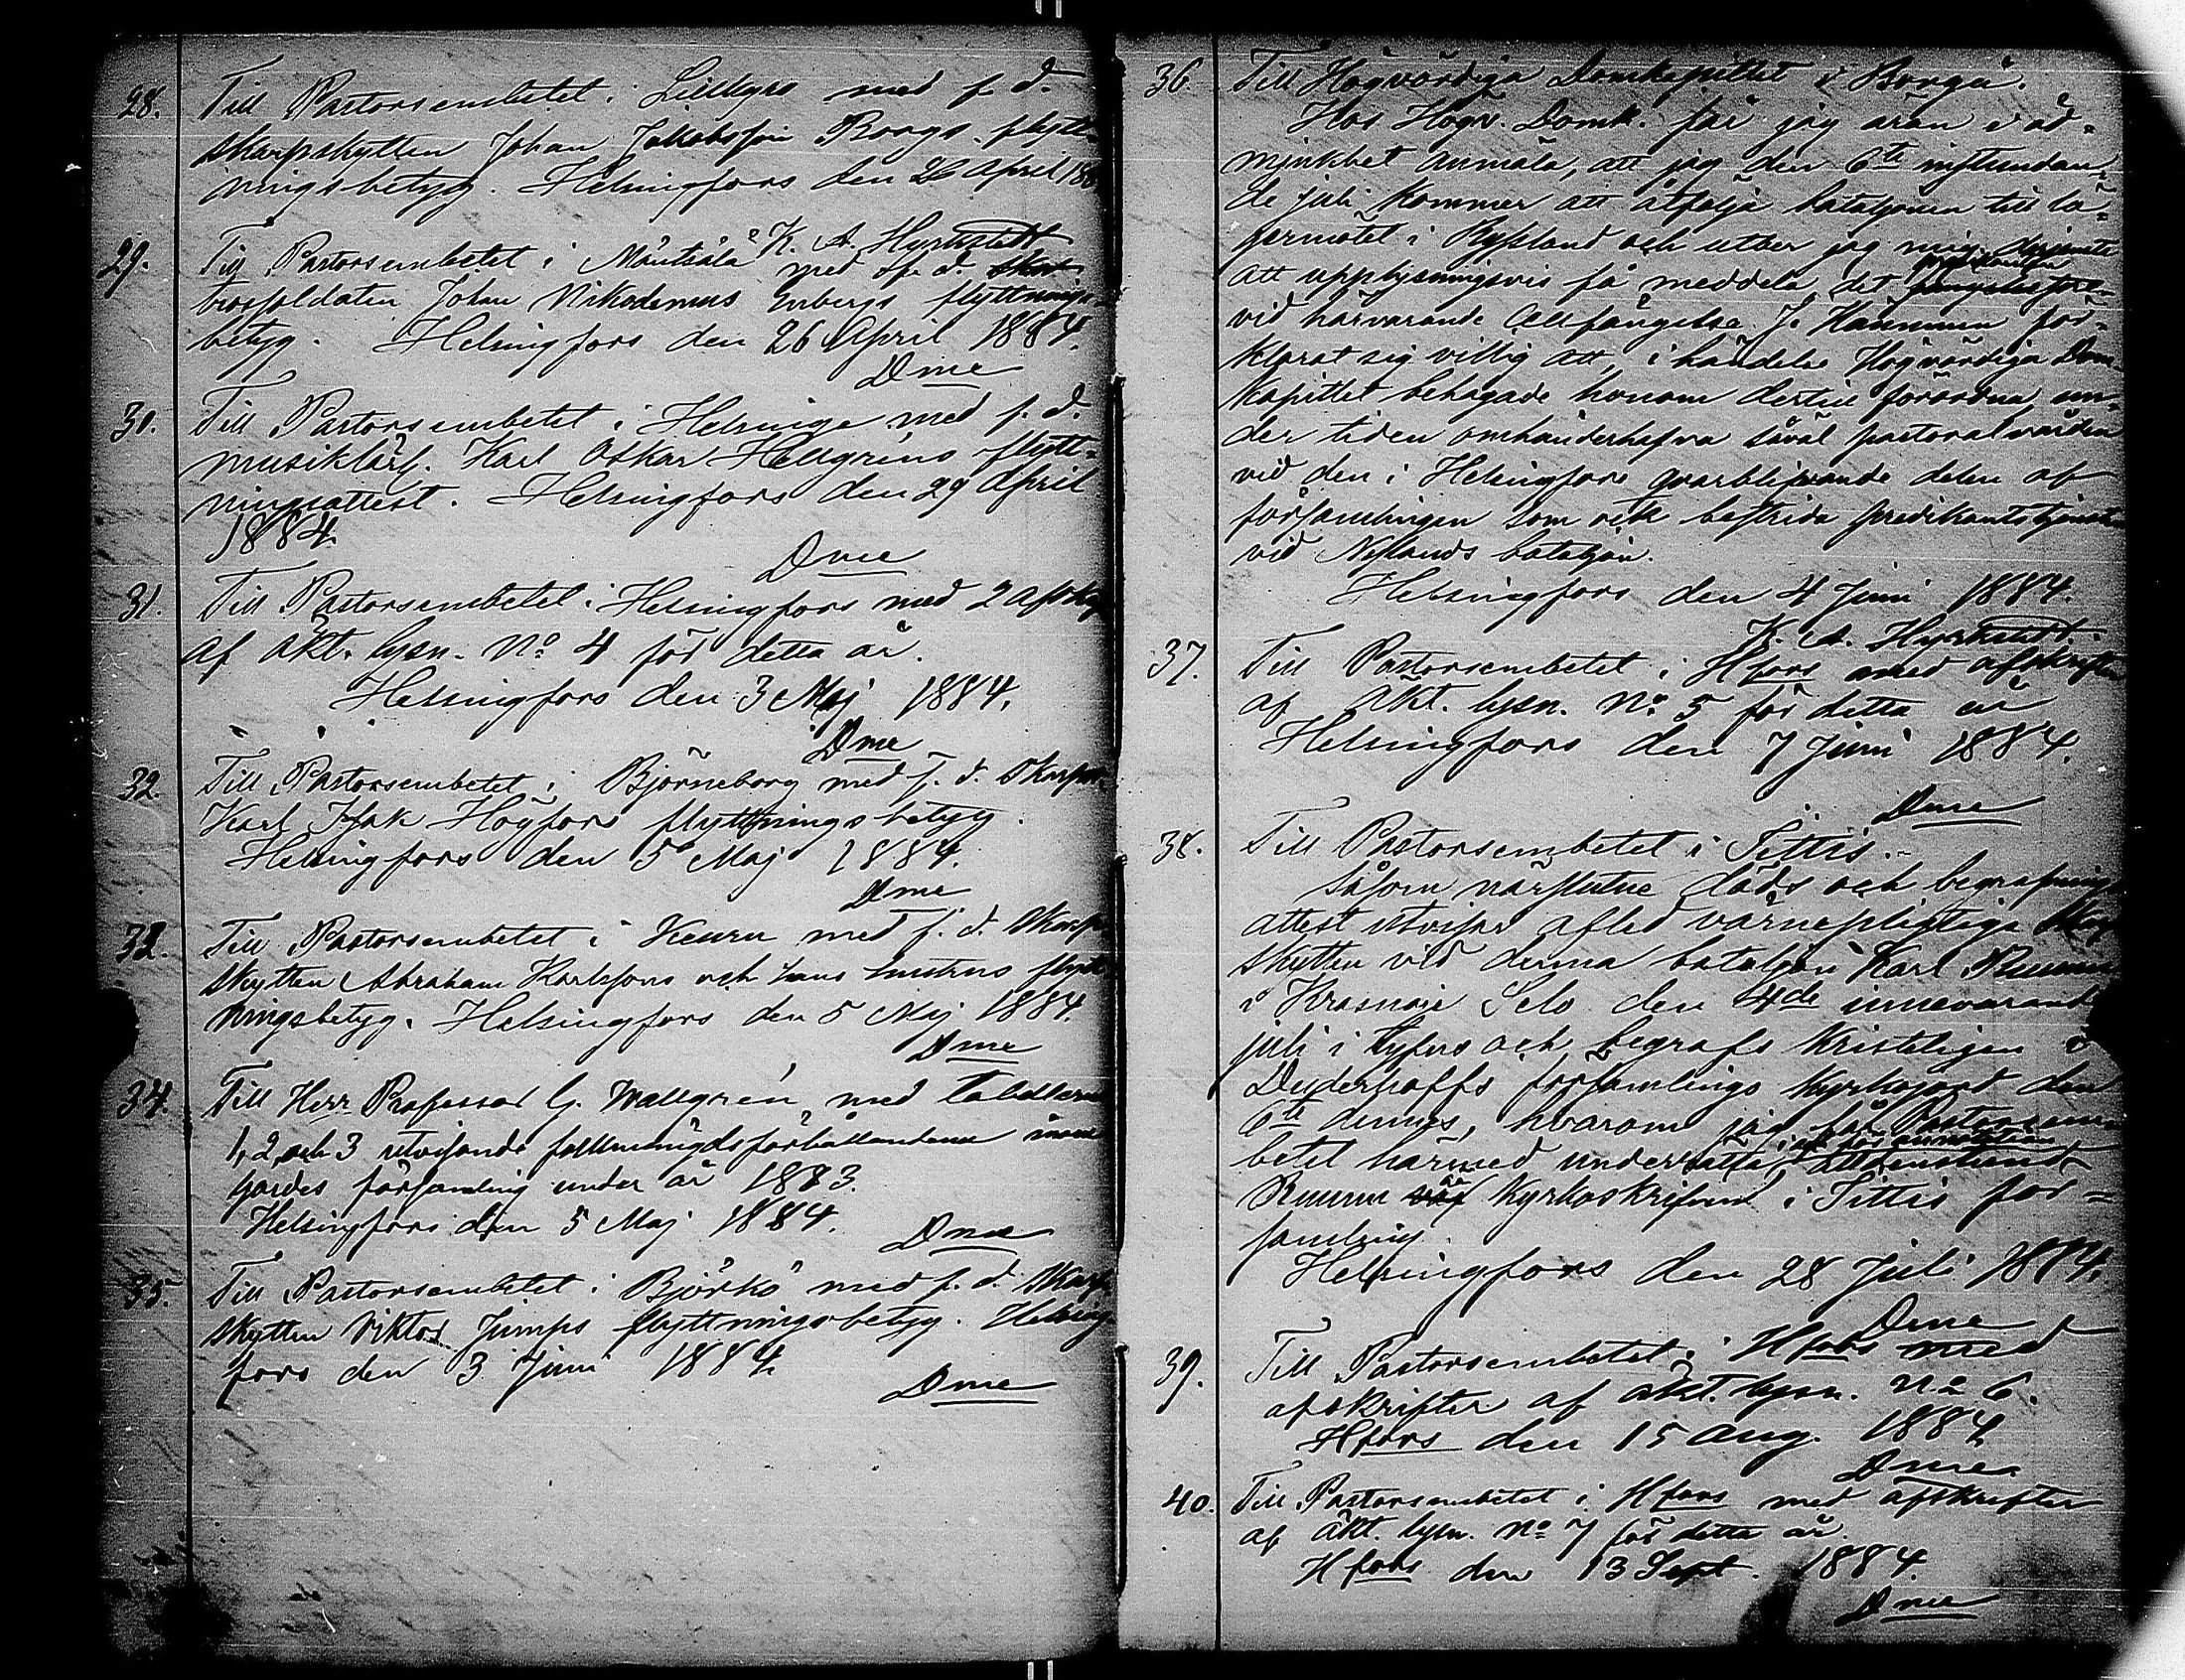 28. Till Pastorsembetet i Lillkyro med f. d.
skarpskytten Johan Jakobsson Borgs flytt-
ningsbetyg. Helsingfors den 26 April 188
K. A. Hyrkstedt
29. Till Pastorsembetet i Mäntsälä med f. d.
trossoldaten Johan Nikodemus Enbergs flyttnings-
betyg. Helsingfors den 26 April 1884.
Dme
30. Till Pastorsembetet i Helsinge med f. d.
musiklärl. Karl Oskar Hellgréns flytt-
ningsattest. Helsingfors den 29 April
1884.
Dme
31. Till Pastorsembetet i Helsingfors med 2 afskr
af äkt. lysn. No 4 för detta år.
Helsingfors den 3 Maj 1884.
Dme
32. Till Pastorsembetet i Björneborg med f. d. skarps
Karl Isak Högfors flyttningsbetyg.
Helsingfors den 5 Maj 1884.
Dme
32. Till Pastorsembetet i Keuru med f. d. skarp
skytten Abraham Karlssons och hans hustrus flytt
ningsbetyg. Helsingfors den 5 Maj 1884.
Dme
34. Till Herr Professor G. Wallgrén med tabellerna
1, 2 och 3 utvisande folkmängdsförhållandena inom
Gardes församling under år 1883.
Helsingfors den 5 Maj 1884.
Dme
35. Till Pastorsembetet i Björkö med f. d. skarp
skytten Viktor Jumps flyttningsbetyg. Helsing
fors den 3 Juni 1884
Dme
36. Till Högvördiga Domkapitlet i Borgå.
Hos Högv. Domk. får jag äran i öd-
mjukhet anmäla, att jag den 6te nästundan-
de juli kommer att åtfölja bataljonen till lä-
germötet i Ryssland och utber jag mig derjemte
att upplysningsvis få meddela det predikanten
vid härvarande Cellfängelse J. Hannunen för-
klarat sig villig att, i händelse Högvördiga Dom-
kapitlet behagade honom dertill förordna, un-
der tiden omhänderhafva såväl pastoralvården
vid den i Helsingfors qvarblifvande delen af
församlingen som ock bestrida predikantstjensten
vid Nylands bataljon.
Helsingfors den 4 Juni 1884.
K. A. Hyrkstedt.
37. Till Pastorsembetet i Hfors med afskrifter
af äkt. lysn. No 5 för detta år
Helsingfors den 7 Juni 1884.
Dme
38. Till Pastorsembetet i Sittis.
Såsom närslutne döds och begrafnings
attest utvisar afled värnepligtige skarp
skytten vid denna bataljon Karl Ruunu
i Krasnoje Selo den 4de innevarande
juli i tyfus och begrafs kristeligen å
Duderhoffs församlings kyrkogård den
6te dennes, hvarom jag får Pastorsem
betet härmed underrätta, för annotation
Ruunu är kyrkoskrifven i Sittis för-
samling.
Helsingfors den 28 Juli 1884.
Dme
39. Till Pastorsembetet i Hfors med
afskrifter af äkt. lysn. No 6.
Hfors den 15 Aug. 1884
Dme
40. Till Pastorsembetet i Hfors med afskrifter
af äkt. lysn. No 7 för detta år.
Hfors den 13 Sept. 1884.
Dme